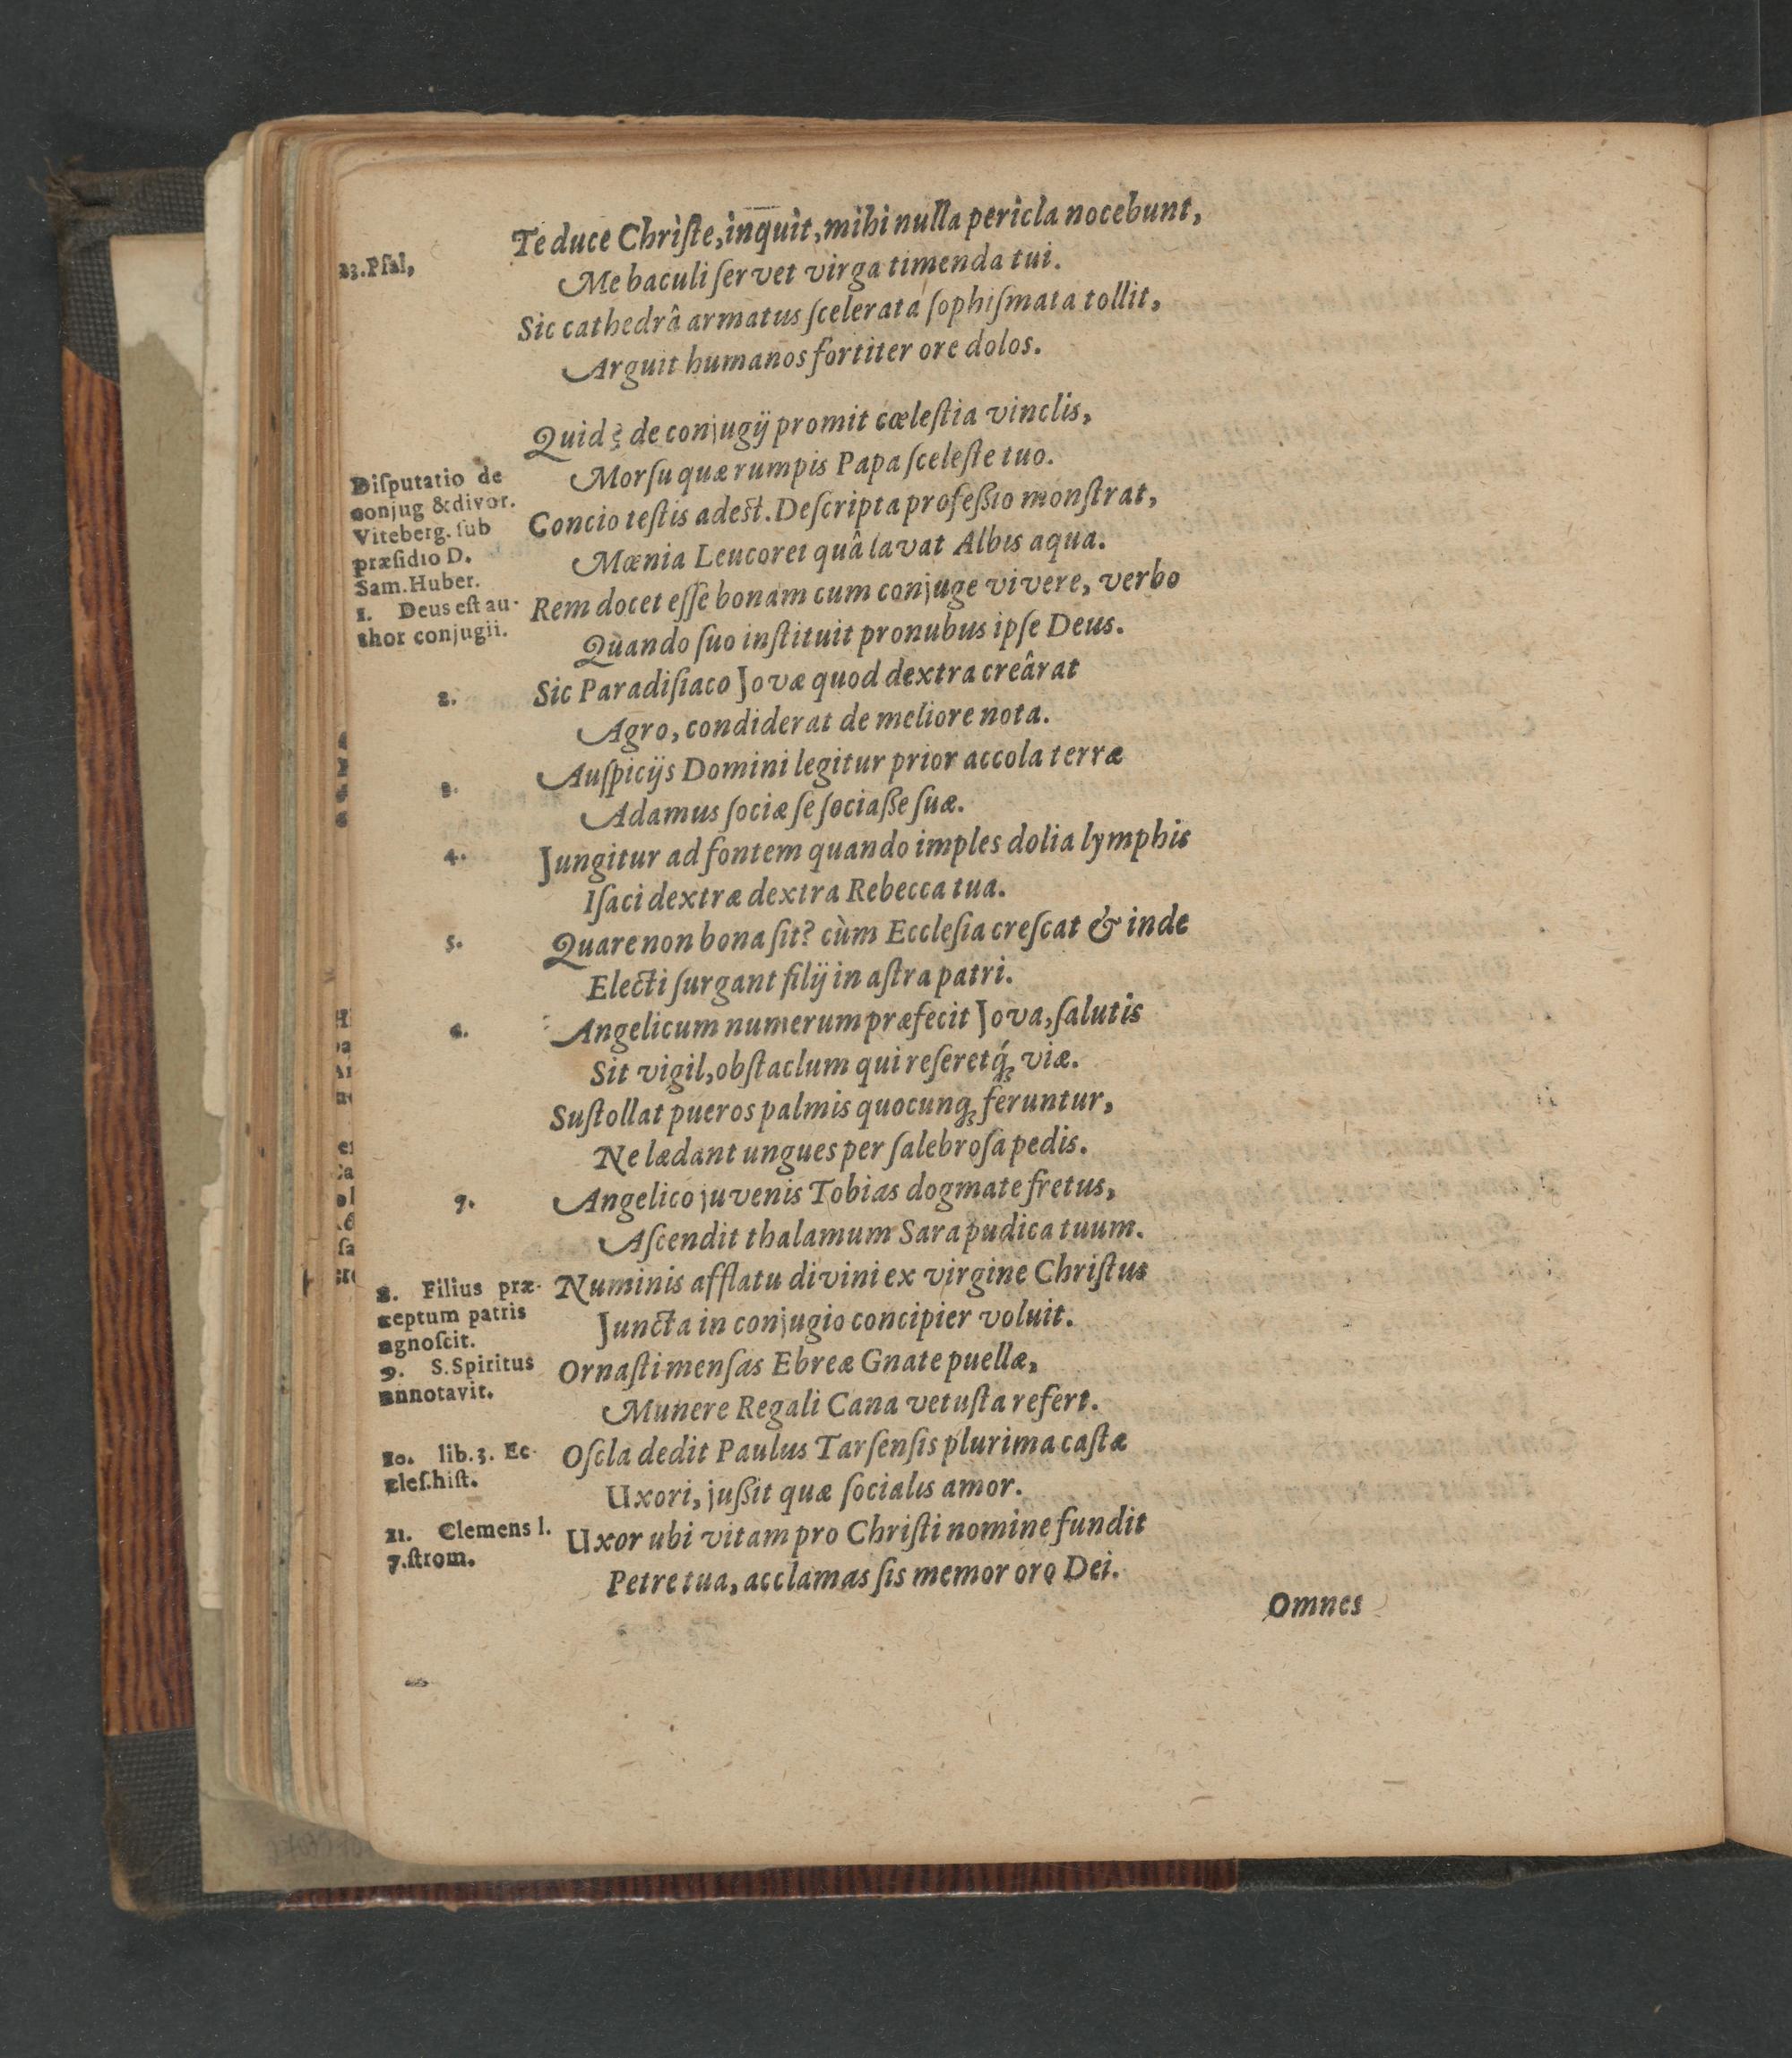 Te duce Chriſte, inquit, mihi nulla pericla nocebunt,
23. Pſal,
Me baculi ſervet virga timenda tui.
Sic cathedrâ armatus ſcelerata ſophiſmata tollit,
Arguit humanos fortiter ore dolos.
Quid de conjugij promit cœleſtia vinclis,
Morſu quæ rumpis Papa ſceleſte tuo.
Diſputatio de
conjug & divor.
Viteberg. ſub
præſidio D.
Sam. Huber.
Concio teſtis adest. Deſcripta profeßio monſtrat,
Mœnia Leucorei quâ lavat Albis aqua.
1. Deus eſt au-
thor conjugii.
Rem docet eſſe bonam cum conjuge vivere, verbo
Quando ſuo inſtituit pronubus ipſe Deus.
2.
Sic Paradiſiaco Jovæ quod dextra creârat
Agro, condiderat de meliore nota.
3.
Auſpicijs Domini legitur prior accola terræ
Adamus ſociæ ſe ſociaße ſuæ.
4.
Jungitur ad fontem quando imples dolia lymphis
Iſaci dextræ dextra Rebecca tua.
5.
Quare non bona ſit? cùm Eccleſia creſcat & inde
Electi ſurgant filij in aſtra patri.
6.
Angelicum numerum præfecit Jova, ſalutis
Sit vigil, obſtaclum qui reſeretq́; viæ.
Suſtollat pueros palmis quocunq; feruntur,
Ne lædant ungues per ſalebroſa pedis.
7.
Angelico juvenis Tobias dogmate fretus,
Aſcendit thalamum Sara pudica tuum.
8. Filius præ-
ceptum patris
agnoſcit.
Numinis afflatu divini ex virgine Chriſtus
Juncta in conjugio concipier voluit.
9. S. Spiritus
annotavit.
Ornaſti menſas Ebreæ Gnate puellæ,
Munere Regali Cana vetuſta refert.
10. lib. 3. Ec-
cleſ. hiſt.
Oſcla dedit Paulus Tarſenſis plurima caſtæ
Uxori, jußit quæ ſocialis amor.
11. Clemens l.
7. ſtrom.
Uxor ubi vitam pro Chriſti nomine fundit
Petre tua, acclamas ſis memor oro Dei.
Omnes